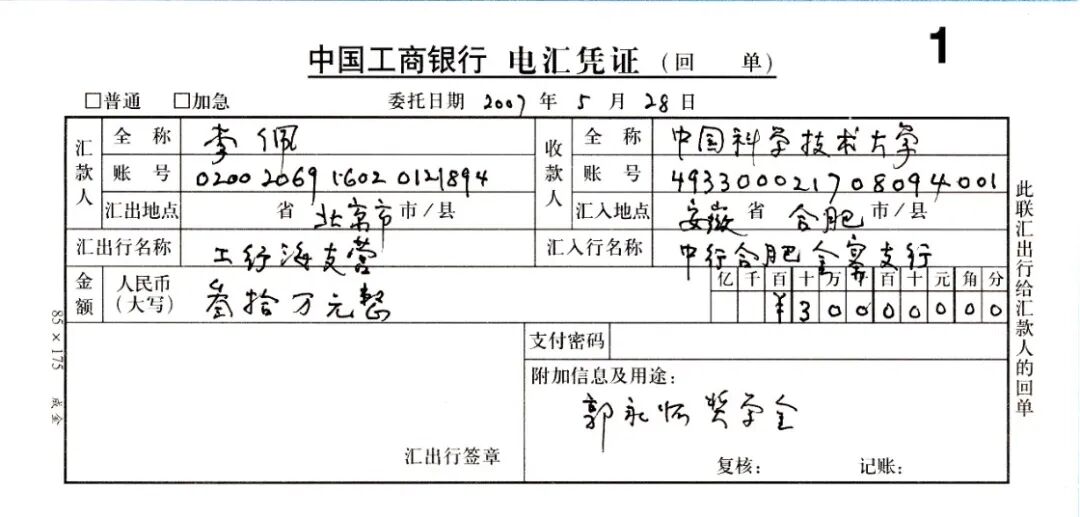 1
中国工商银行 电汇凭证 (回 单)
□普通 □加急 委托日期 2007 年 5 月 28 日
汇款人 全称 李佩 收款人 全称 中国科学技术大学
账号 0200206916020121894 账号 493300021708094001
汇出地点 省 北京市 市/县 汇入地点 安徽 省 合肥 市/县
汇出行名称 工行海支营 汇入行名称 中行合肥金寨支行
金额 人民币(大写) 叁拾万元整 亿 千 百 十 万 千 百 十 元 角 分
¥ 3 0 0 0 0 0 0 0
支付密码
附加信息及用途:
郭永怀奖学金
汇出行签章
复核: 记账:
此联汇出行给汇款人的回单
85×175